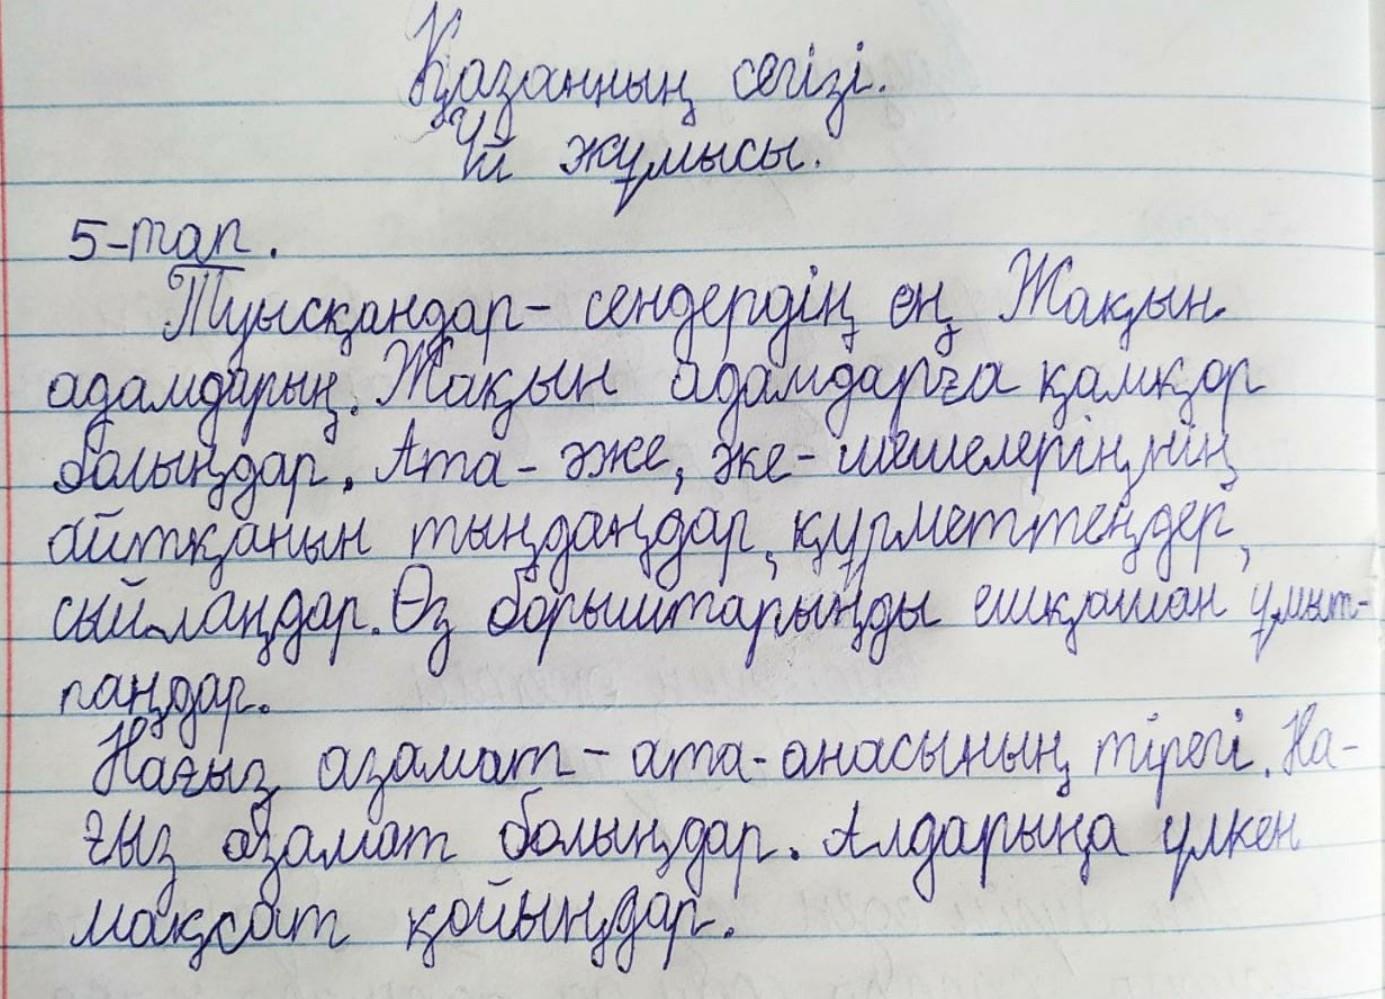 Қазанның сегізі.
Үй жұмысы.
5-тап.
Туысқандар- сендердің ең Жақын
адамдарың. Жақын адамдарға қамқор
болыңдар. Ата- әже, әке- шешелеріңнің
айтқанын тыңдаңдар, құрметтеңдер,
сыйлаңдар. Өз борыштарыңды ешқашан ұмыт-
паңдар.
Нағыз азамат – ата-анасының тірегі. На-
ғыз азамат болыңдар. Алдарыңа үлкен
мақсат қойыңдар.